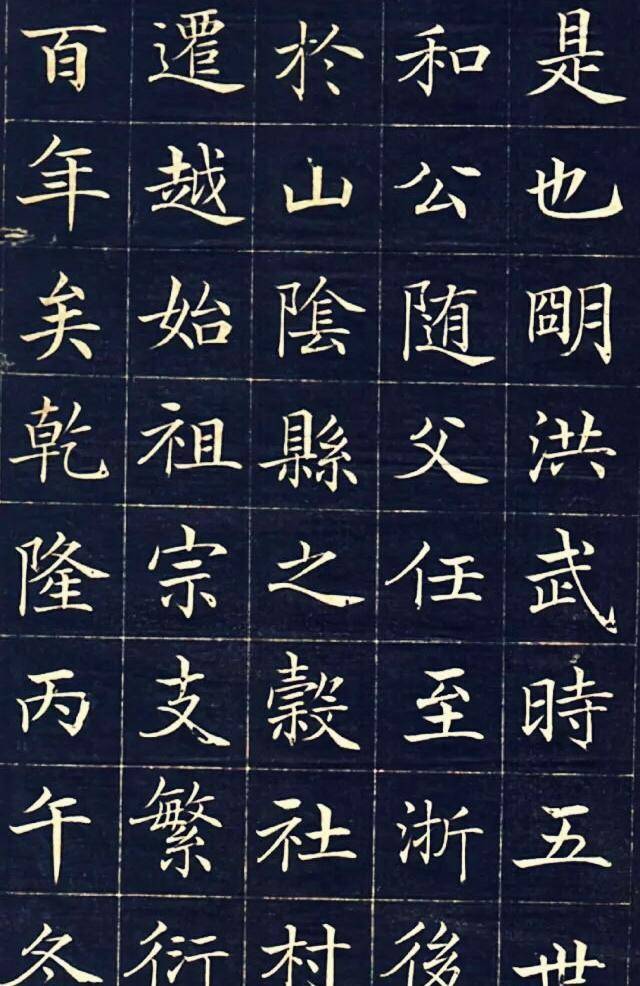 是也朙洪武時五世
和公随父任至浙後
於山陰縣之糓社村
遷越始祖宗支繁衍
百年矣乾隆丙午冬